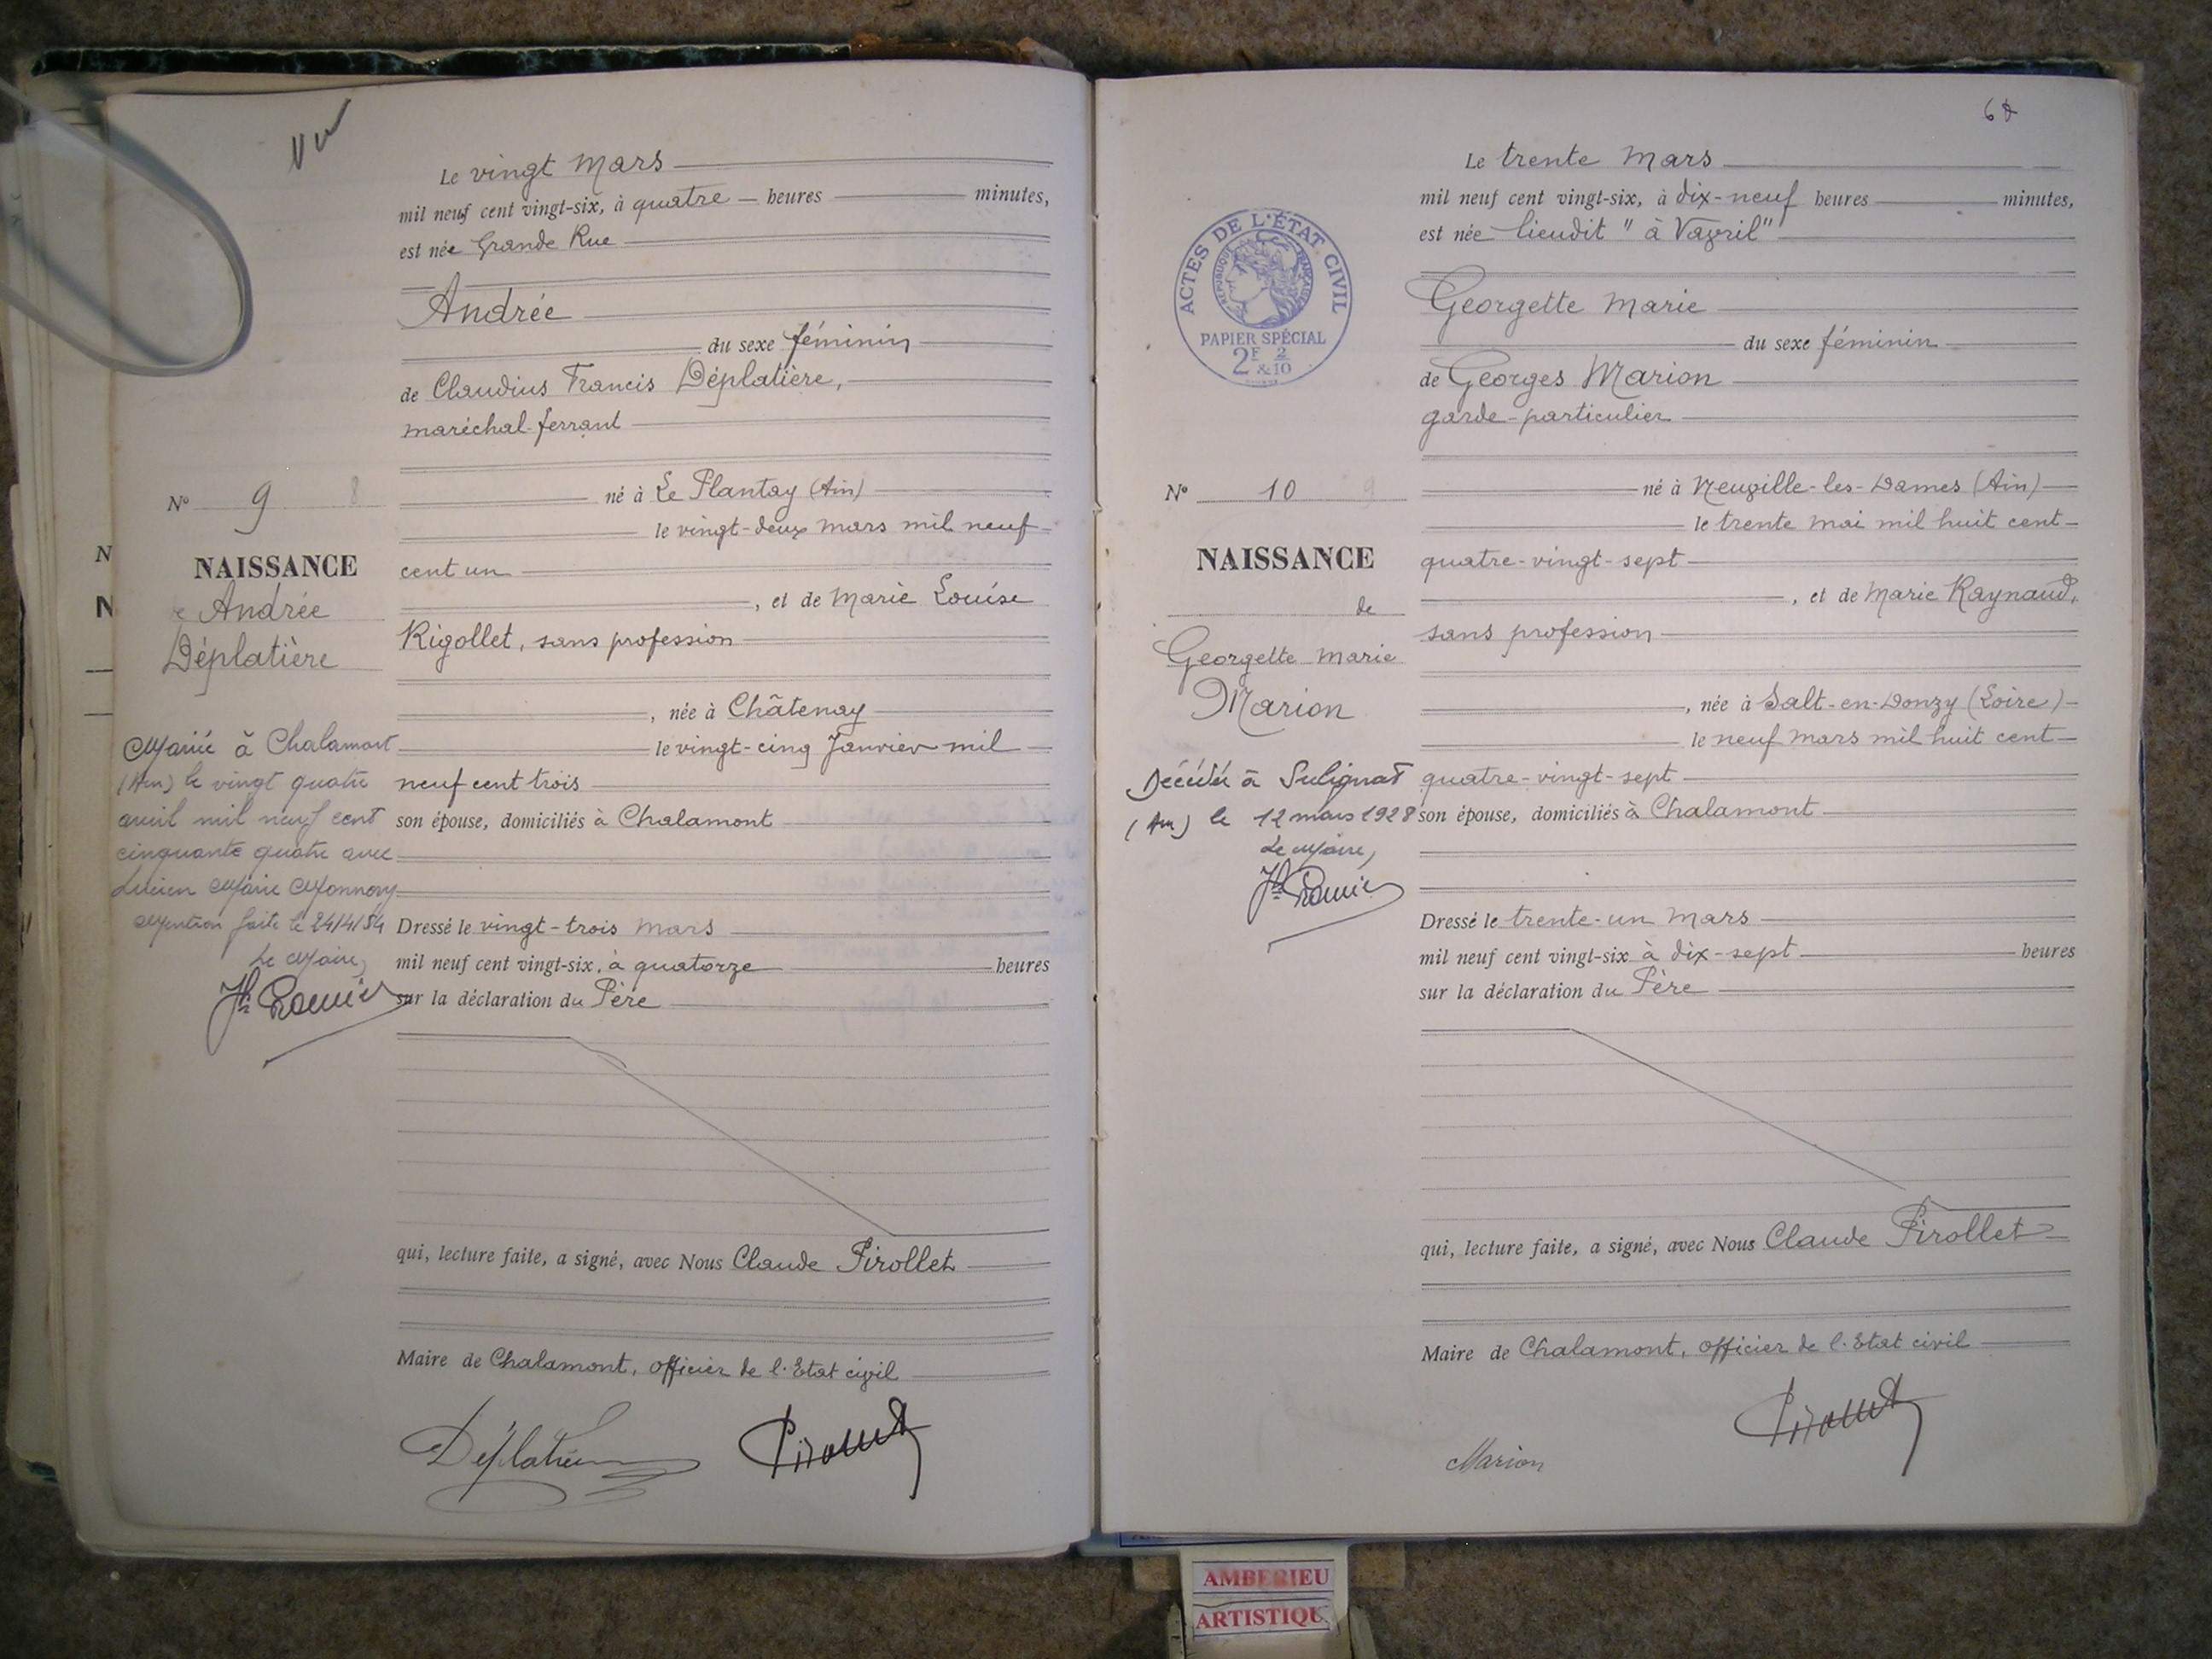 Vu
Le vingt Mars
mil neuf cent vingt-six, à quatre heures minutes,
est née Grande Rue
Andrée
du sexe féminin
de Claudius Francis Déplatière,
maréchal-ferrant
né à Le Plantay (Ain)
le vingt-deux mars mil neuf
cent un
, et de Marie Louise
Rigollet, sans profession
, née à Châtenay
le vingt-cinq Janvier mil
neuf cent trois
son épouse, domiciliés à Chalamont
Dressé le vingt-trois Mars
mil neuf cent vingt-six, à quatorze heures
sur la déclaration du Père
qui, lecture faite, a signé, avec Nous Claude Pirollet
Maire de Chalamont, officier de l'Etat civil
Déplatière Pirollet
N° 9 8
NAISSANCE
Andrée
Déplatière
Mariée à Chalamont
(Ain) le vingt quatre
avril mil neuf cent
cinquante quatre avec
Lucien Marie Monnory
Mention faite le 24/4/54
Le Maire,
N
N
6
Le trente Mars
mil neuf cent vingt-six, à dix-neuf heures minutes,
est née lieudit "à Vavril"
Georgette Marie
du sexe féminin
de Georges Marion
garde-particulier
né à Neuville-les-Dames (Ain)
le trente mai mil huit cent
quatre-vingt-sept
, et de Marie Raynaud,
sans profession
, née à Salt-en-Donzy (Loire)
le neuf mars mil huit cent
quatre-vingt-sept
son épouse, domiciliés à Chalamont
Dressé le trente-un Mars
mil neuf cent vingt-six à dix-sept heures
sur la déclaration du Père
qui, lecture faite, a signé, avec Nous Claude Pirollet
Maire de Chalamont, officier de l'Etat civil
Marion Pirollet
ACTES DE L'ÉTAT CIVIL
RÉPUBLIQUE FRANÇAISE
PAPIER SPÉCIAL
2F & 2/10
N° 10 9
NAISSANCE
de
Georgette Marie
Marion
Décédée à Sulignat
(Ain) le 12 mars 1928
Le Maire,
AMBERIEU
ARTISTIQU